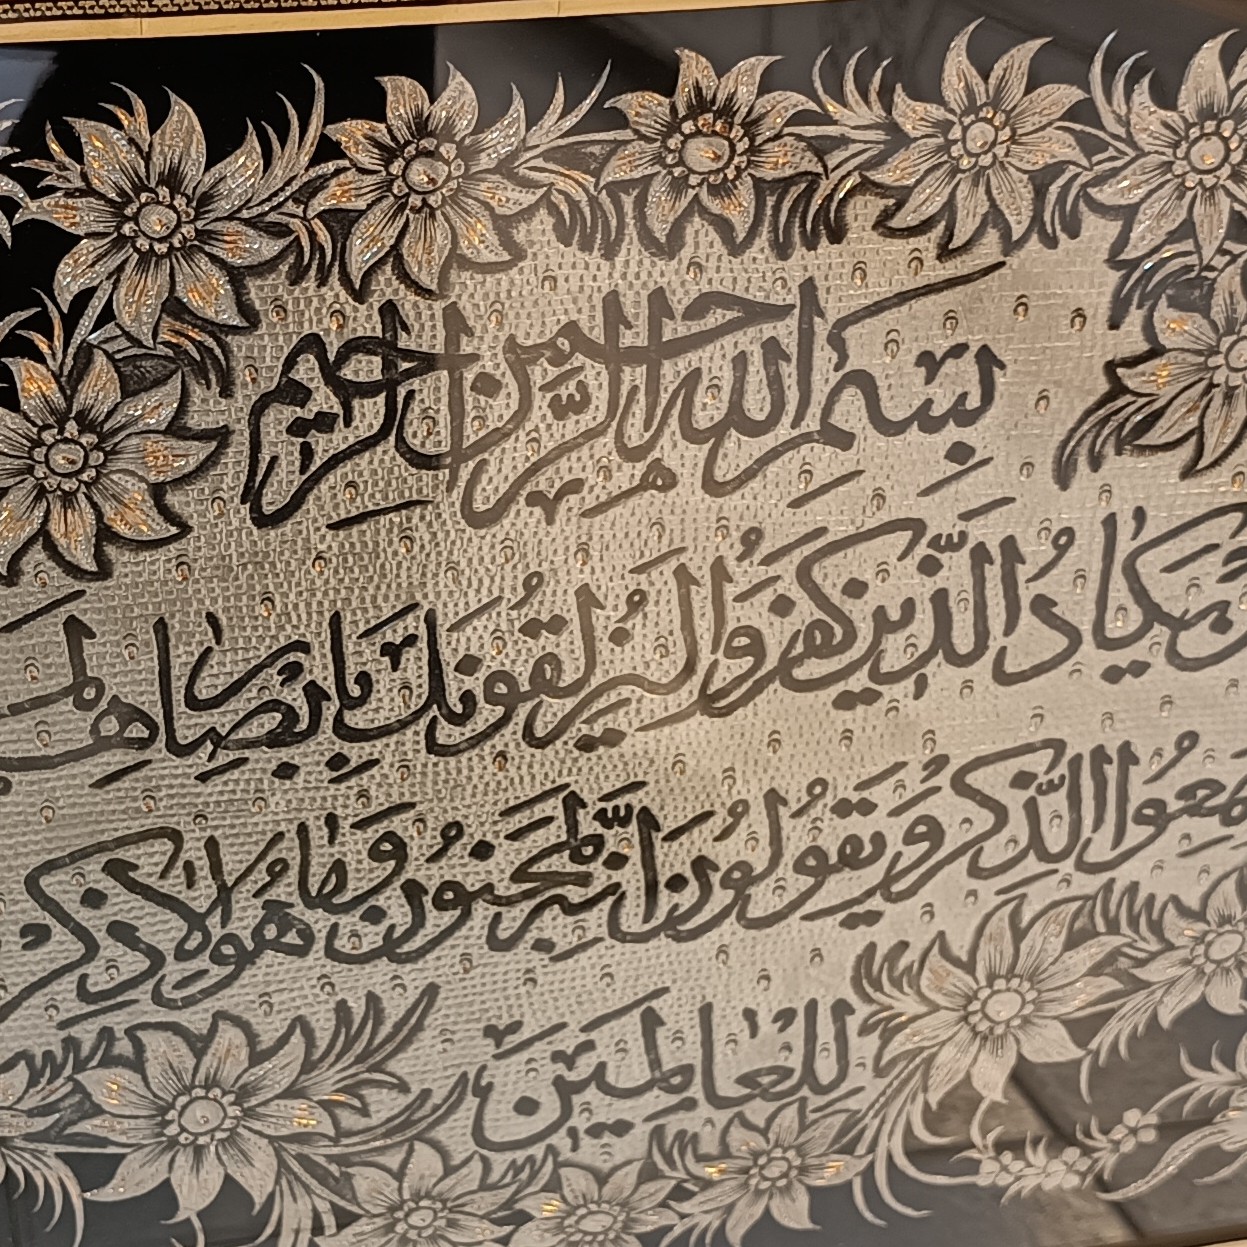 بِسْمِ اللهِ الرَّحْمٰنِ الرَّحِيْمِ
يَكَادُ الَّذِيْنَ كَفَرُوْا لَيُزْلِقُوْنَكَ بِاَبْصَارِهِمْ لَمَّا
سَمِعُوا الذِّكْرَ وَيَقُوْلُوْنَ اِنَّهٗ لَمَجْنُوْنٌ وَمَا هُوَ اِلَّا ذِكْرٌ
لِلْعَالَمِيْنَ